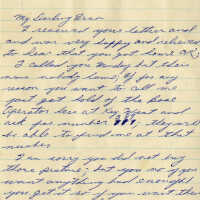 My Darling Dear
I received your letter and
and was very happy and relieved
to hear that you got home O.K.
I called you Monday but there
was nobody home, If for any
reason you want to call me
just get hold of the Base
Operator here at
ask for number they will
be able to find me at that
number.
I am sorry you did not buy
those picture, but you no if you
want anything bad enough
you get it so if you want them